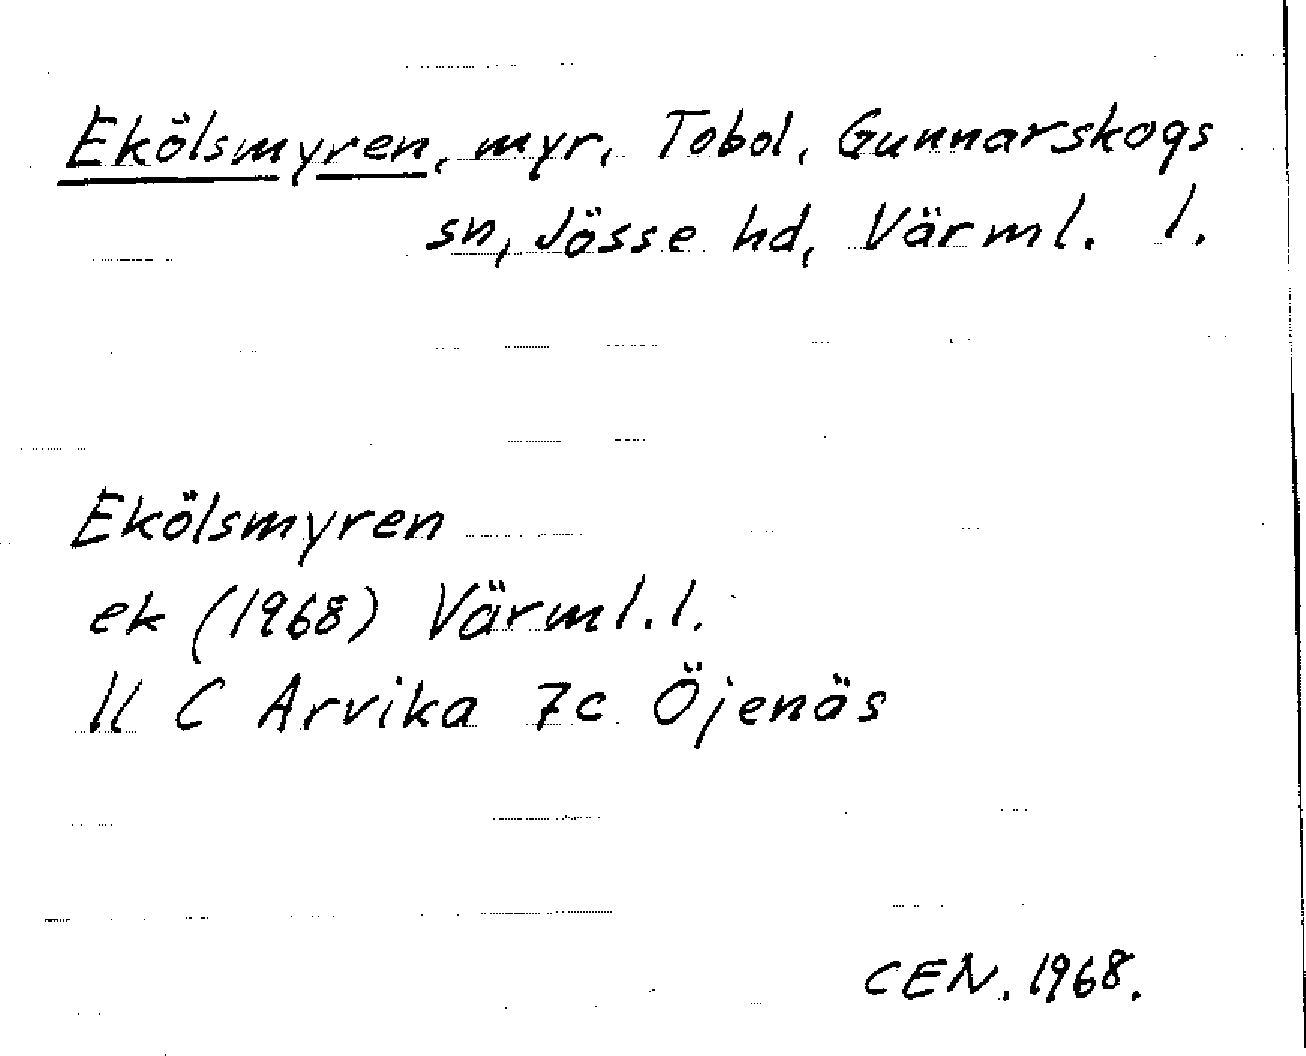 Ekölsmyren, myr, Tobol, Gunnarskogs
sn, Jösse hd, Värml. l.
Ekölsmyren
ek (1968) Värml. l.
11 C Arvika 7c Öjenäs
CEN. 1968.